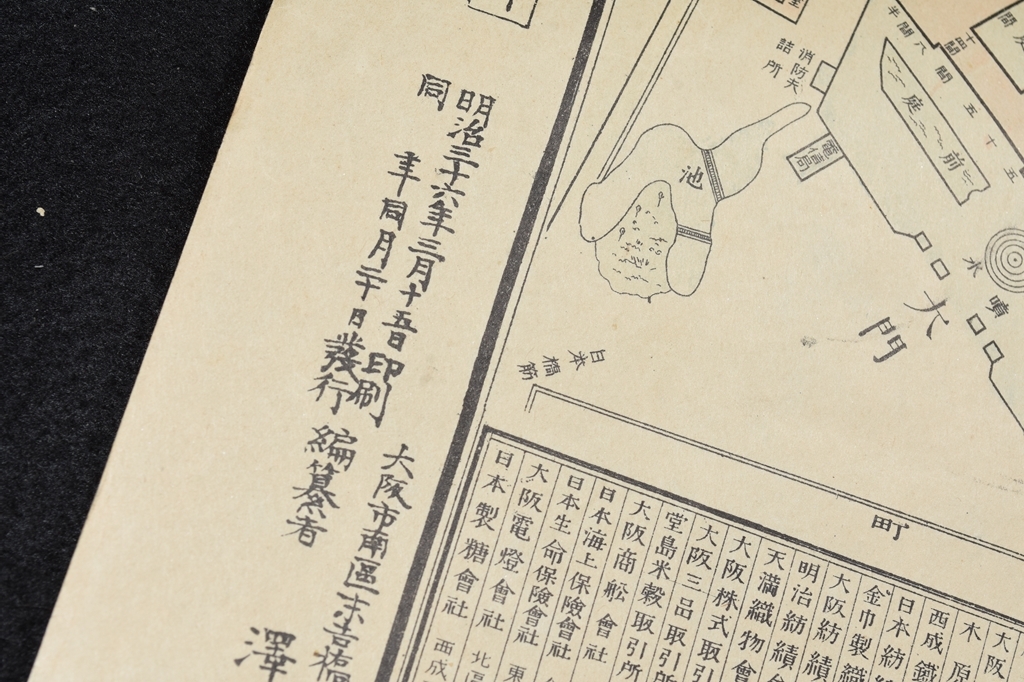 明治三十六年三月十五日印刷
同年同月二十日發行
大阪市南區末吉橋
編纂者
澤
消防夫
詰所
池
電信局
前庭
六間半
十四間
五十五間
噴水
大門
日本橋筋
町
大阪
木原
西成鐵
日本紡
金巾製織
大阪紡績
明治紡績會
天満織物會
大阪株式取引
大阪三品取引所
堂島米穀取引所
大阪商舩會社
日本海上保險會社
日本生命保險會社
大阪電燈會社
日本製糖會社
西成
北區
東